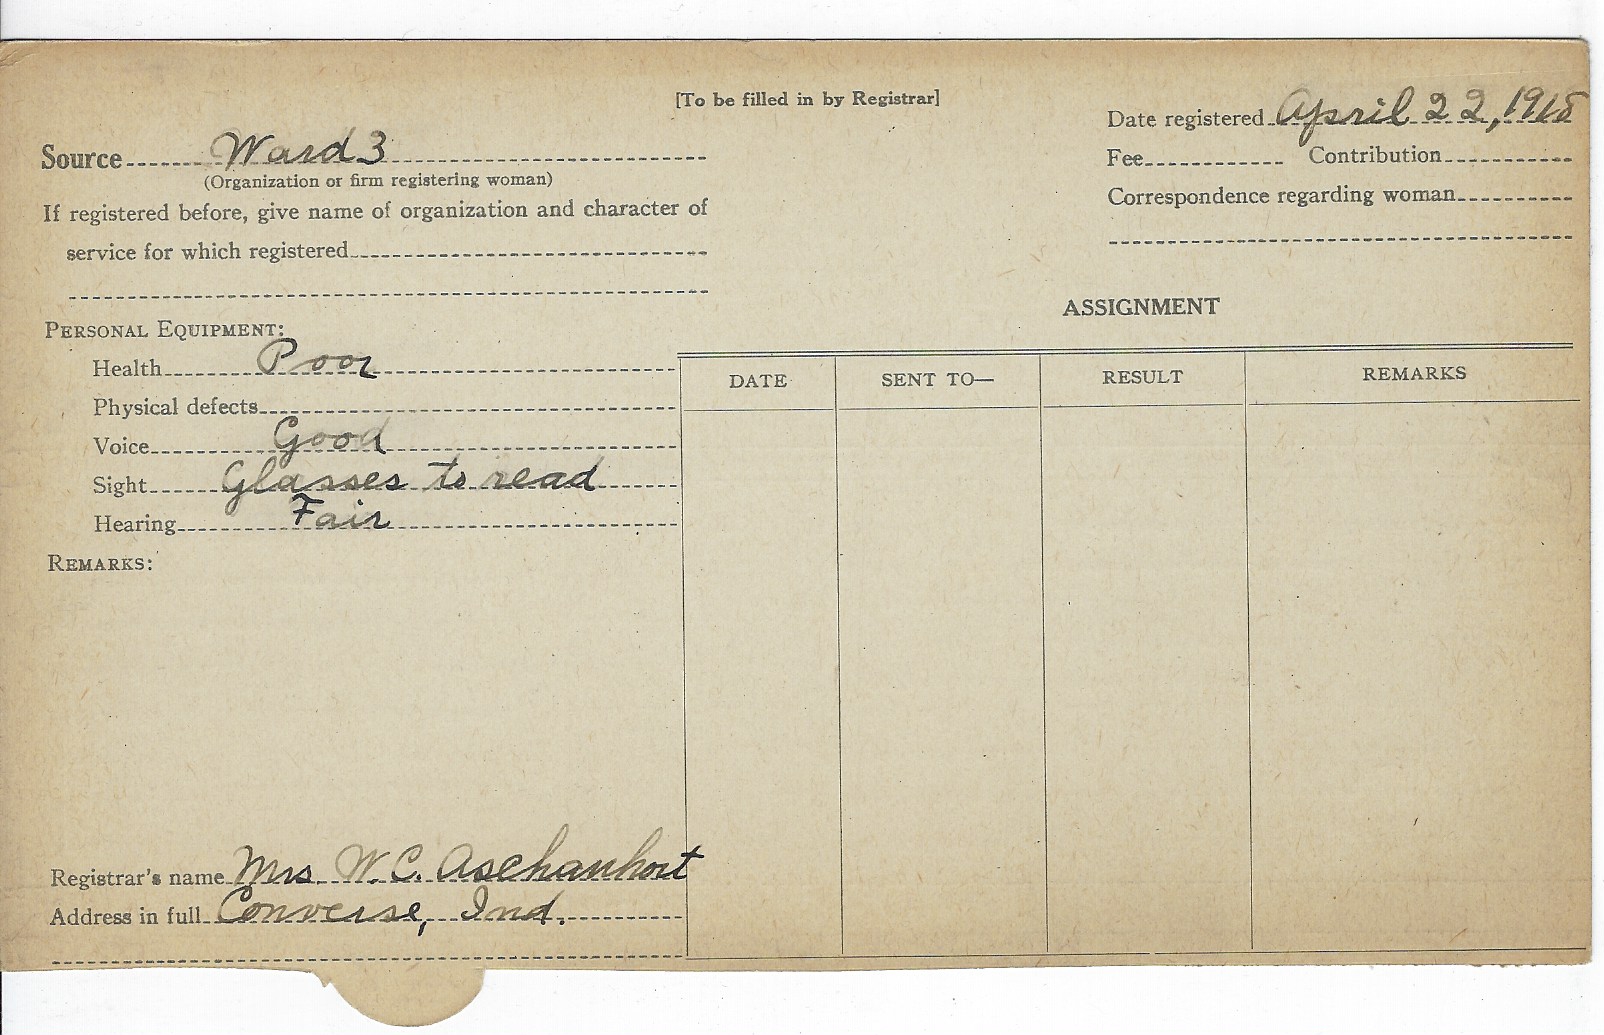 [To be filled in by Registrar]
Date registered April 22, 1918
Source Ward 3
(Organization or firm registering woman)
Fee Contribution
If registered before, give name of organization and character of
service for which registered
Correspondence regarding woman
ASSIGNMENT
PERSONAL EQUIPMENT:
Health Poor
Physical defects
Voice Good
Sight Glasses to read
Hearing Fair
REMARKS:
DATE SENT TO— RESULT REMARKS
Registrar's name Mrs W.C. Aschanhort
Address in full Converse, Ind.